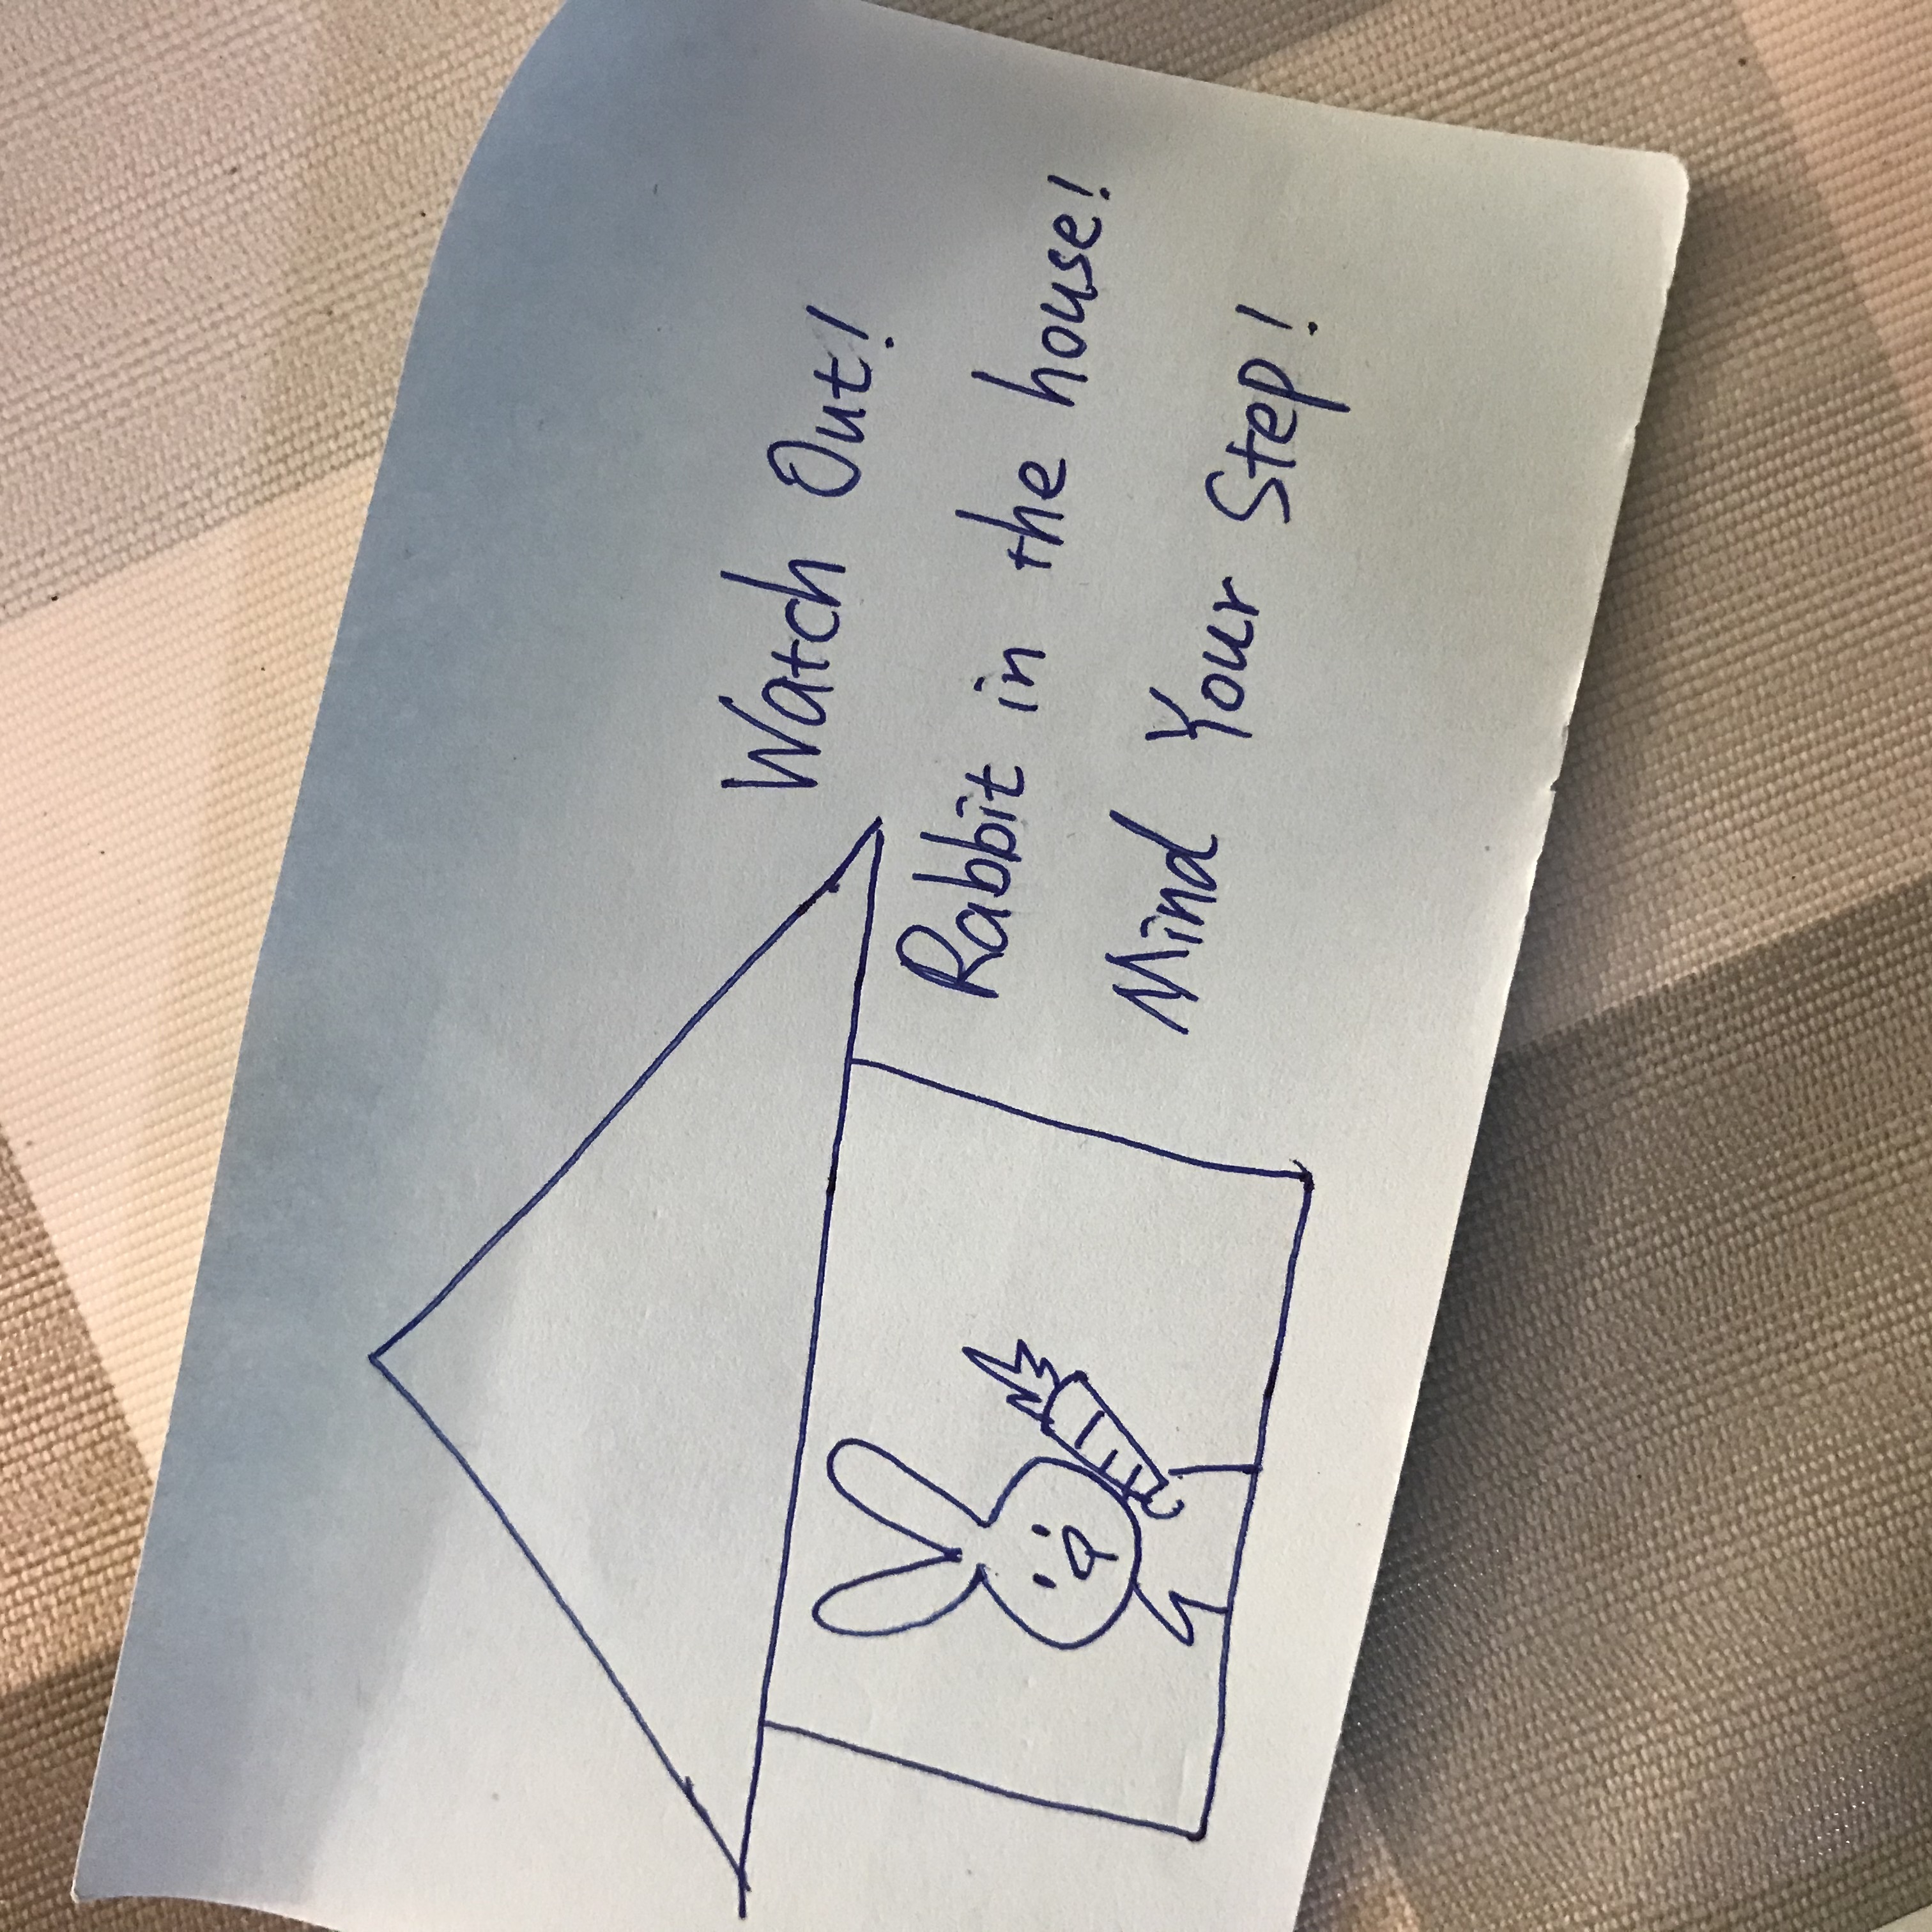 Watch Out!
Rabbit in the house!
Mind Your Step!